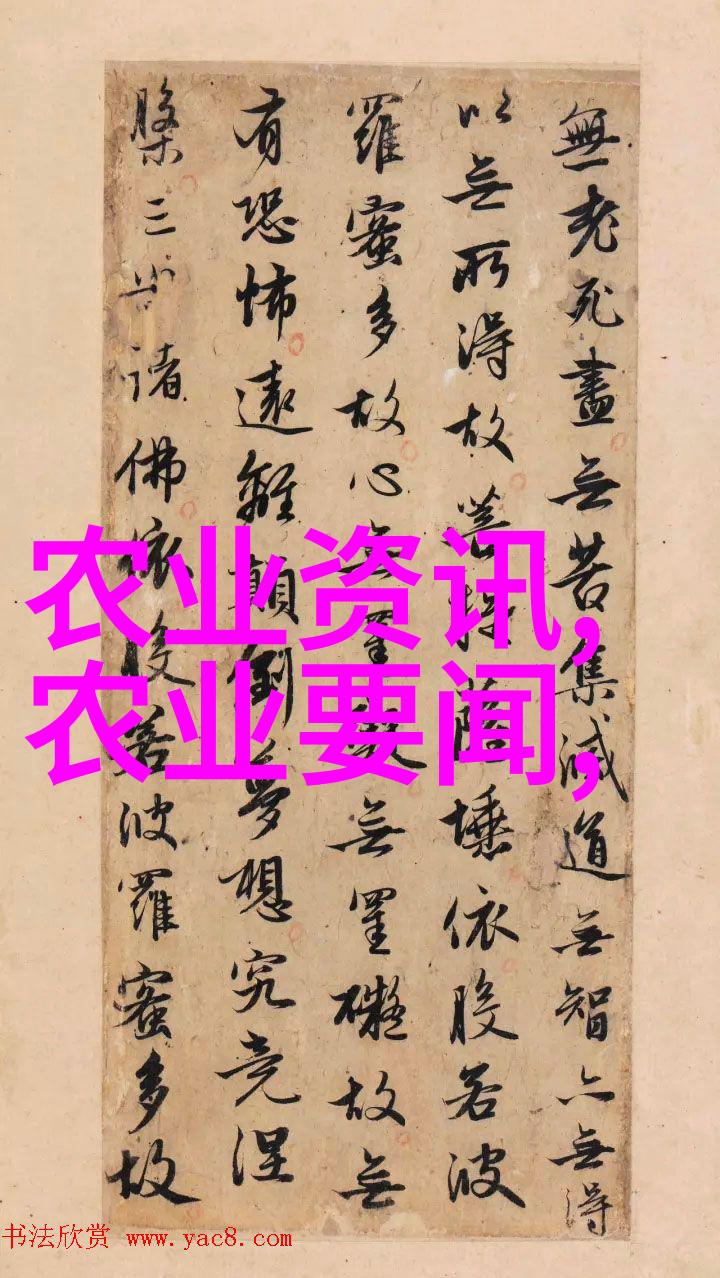 無老死盡無苦集滅道無智亦無得
以無所得故菩提薩埵依般若波
羅蜜多故心無罣礙無罣礙故無
有恐怖遠離顛倒夢想究竟涅
槃三世諸佛依般若波羅蜜多故
农业资讯,
农业要闻,
书法欣赏 www.yac8.com